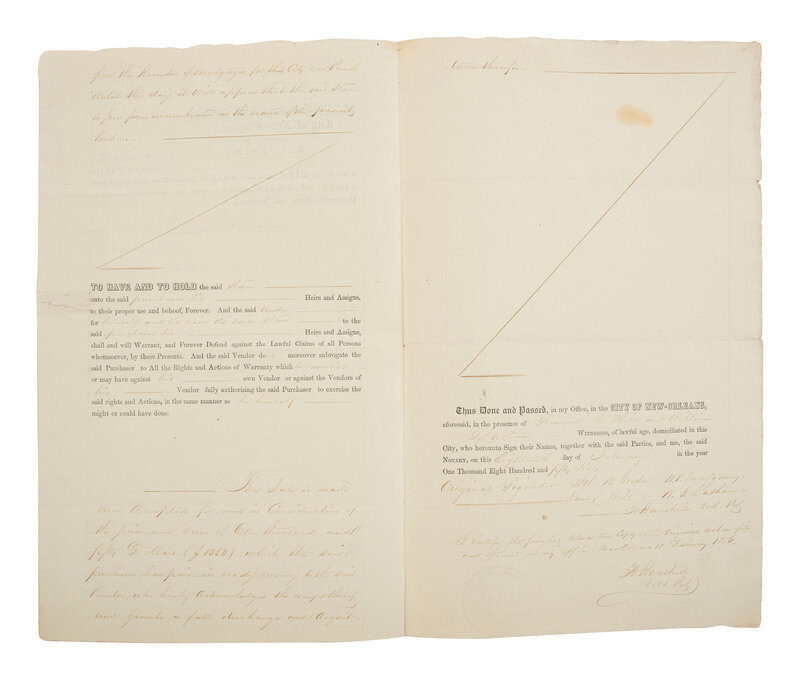 from the Recorder of Mortgages for this City and Parish
dated this day, it will appear that the said Slave
is free from incumbrance in the name of the present
Vendor.
TO HAVE AND TO HOLD the said Slave
unto the said purchaser his Heirs and Assigns,
to their proper use and behoof, Forever. And the said Vendor
for himself and his heirs the said Slave to the
said purchaser his Heirs and Assigns,
shall and will Warrant, and Forever Defend against the Lawful Claims of all Persons
whomsoever, by these Presents. And the said Vendor does moreover subrogate the
said Purchaser to All the Rights and Actions of Warranty which he now has
or may have against his own Vendor or against the Vendors of
his Vendor fully authorising the said Purchaser to exercise the
said rights and Actions, in the same manner as he himself
might or could have done.
This Sale is made
and Accepted for, and in Consideration of
the price and sum of One thousand and
fifty Dollars ($1050) which the said
purchaser has paid in ready money to the said
Vendor, who hereby Acknowledges the receipt thereof
and grants a full discharge and Acquit-
tance therefor.
Thus Done and Passed, in my Office, in the CITY OF NEW-ORLEANS,
aforesaid, in the presence of and William
WITNESSES, of lawful age, domiciliated in this
City, who hereunto Sign their Names, together with the said Parties, and me, the said
NOTARY, on this Eighteenth day of February in the year
One Thousand Eight Hundred and fifty Six
Original Signed: John W. Montgomery
Not. Pub
I Certify the foregoing to be a true Copy of the Original act on file
and of record in my office: New Orleans 18 February 1856
Not. Pub.